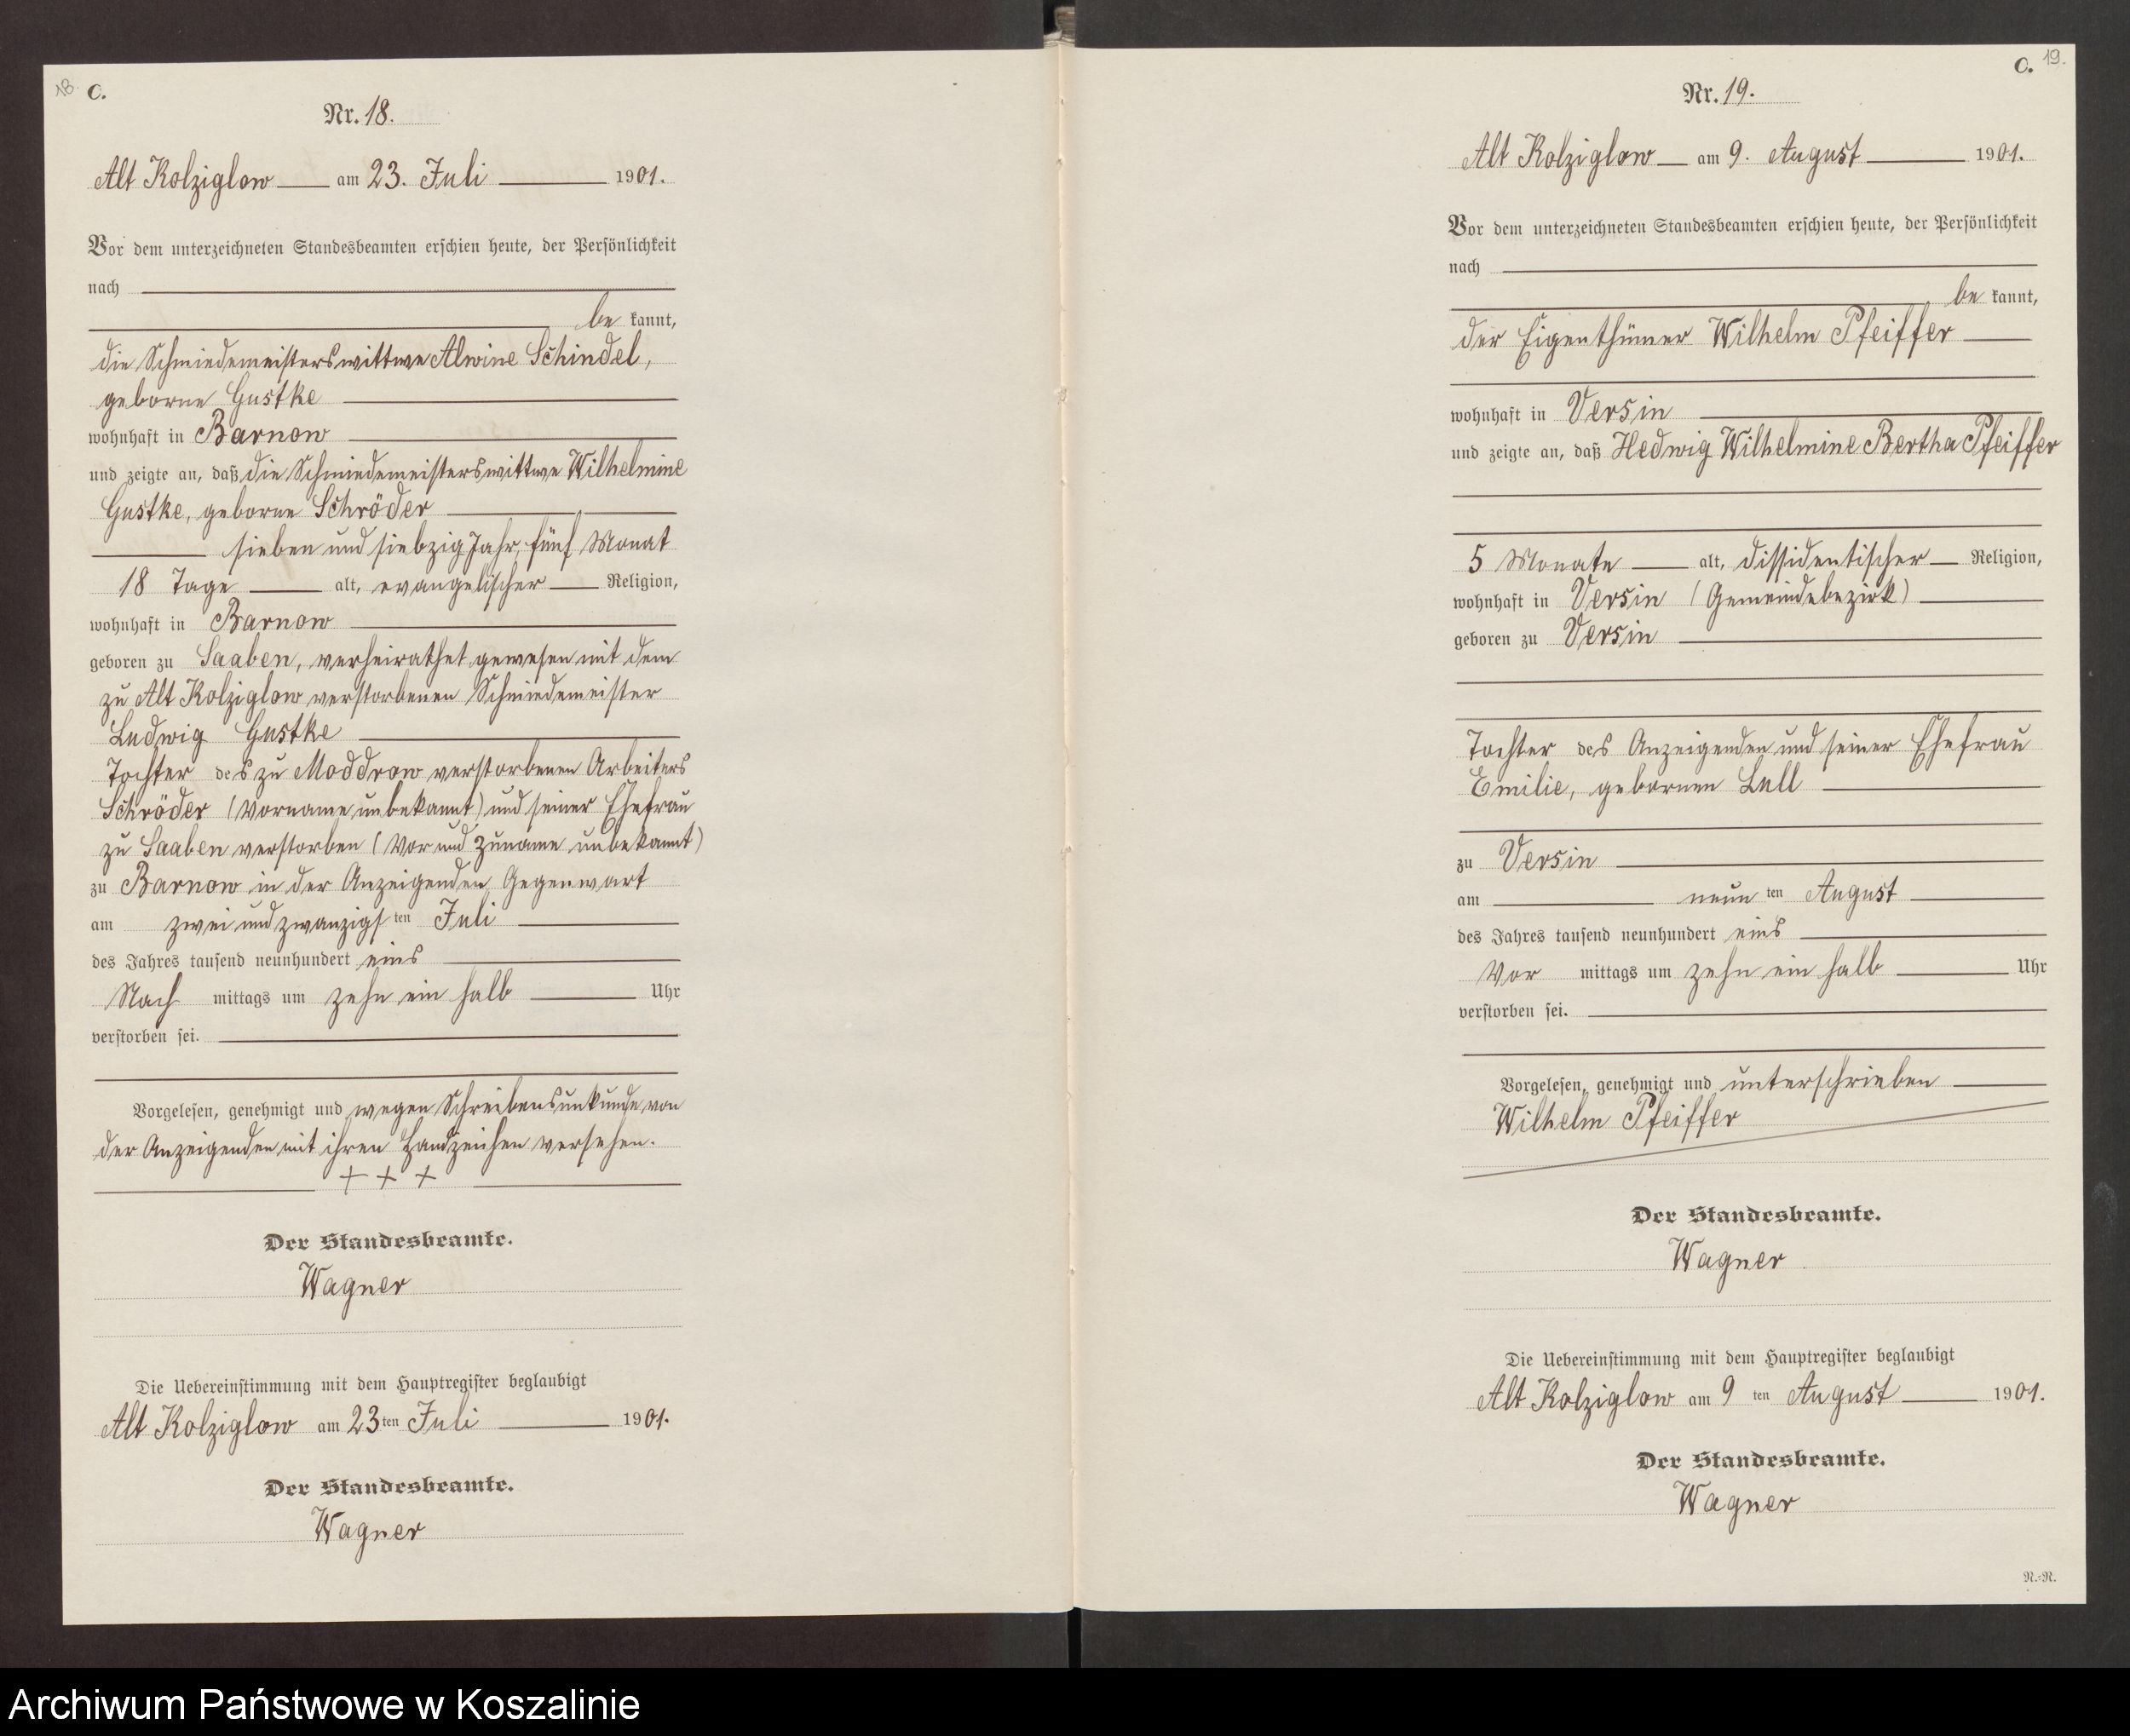 18.
C.
Nr. 18.
Alt Kolziglow am 23. Juli 1901.
Vor dem unterzeichneten Standesbeamten erschien heute, der Persönlichkeit
nach
be kannt,
die Schmiedemeisterswittwe Alwine Schindel,
geborne Gustke
wohnhaft in Barnow
und zeigte an, daß die Schmiedemeisterswittwe Wilhelmine
Gustke, geborne Schröder
sieben und siebzig Jahr, fünf Monat
18 Tage alt, evangelischer Religion,
wohnhaft in Barnow
geboren zu Saaben, verheirathet gewesen mit dem
zu Alt Kolziglow verstorbenen Schmiedemeister
Ludwig Gustke
Tochter des zu Moddrow verstorbenen Arbeiters
Schröder (Vorname unbekannt) und seiner Ehefrau
zu Saaben verstorben (Vor und Zuname unbekannt)
zu Barnow in der Anzeigenden Gegenwart
am zwei und zwanzigsten Juli
des Jahres tausend neunhundert eins
Nach mittags um zehn ein halb Uhr
verstorben sei.
Vorgelesen, genehmigt und wegen Schreibensunkunde von
der Anzeigenden mit ihren Handzeichen versehen.
+ + +
Der Standesbeamte.
Wagner
Die Uebereinstimmung mit dem Hauptregister beglaubigt
Alt Kolziglow am 23ten Juli 1901.
Der Standesbeamte.
Wagner
C. 19.
Nr. 19.
Alt Kolziglow am 9. August 1901.
Vor dem unterzeichneten Standesbeamten erschien heute, der Persönlichkeit
nach
be kannt,
der Eigenthümer Wilhelm Pfeiffer
wohnhaft in Versin
und zeigte an, daß Hedwig Wilhelmine Bertha Pfeiffer
5 Monate alt, dissidentischer Religion,
wohnhaft in Versin (Gemeindebezirk)
geboren zu Versin
Tochter des Anzeigenden und seiner Ehefrau
Emilie, gebornen Lull
zu Versin
am neun ten August
des Jahres tausend neunhundert eins
Vor mittags um zehn ein halb Uhr
verstorben sei.
Vorgelesen, genehmigt und unterschrieben
Wilhelm Pfeiffer
Der Standesbeamte.
Wagner
Die Uebereinstimmung mit dem Hauptregister beglaubigt
Alt Kolziglow am 9 ten August 1901.
Der Standesbeamte.
Wagner
N.-N.
Archiwum Państwowe w Koszalinie